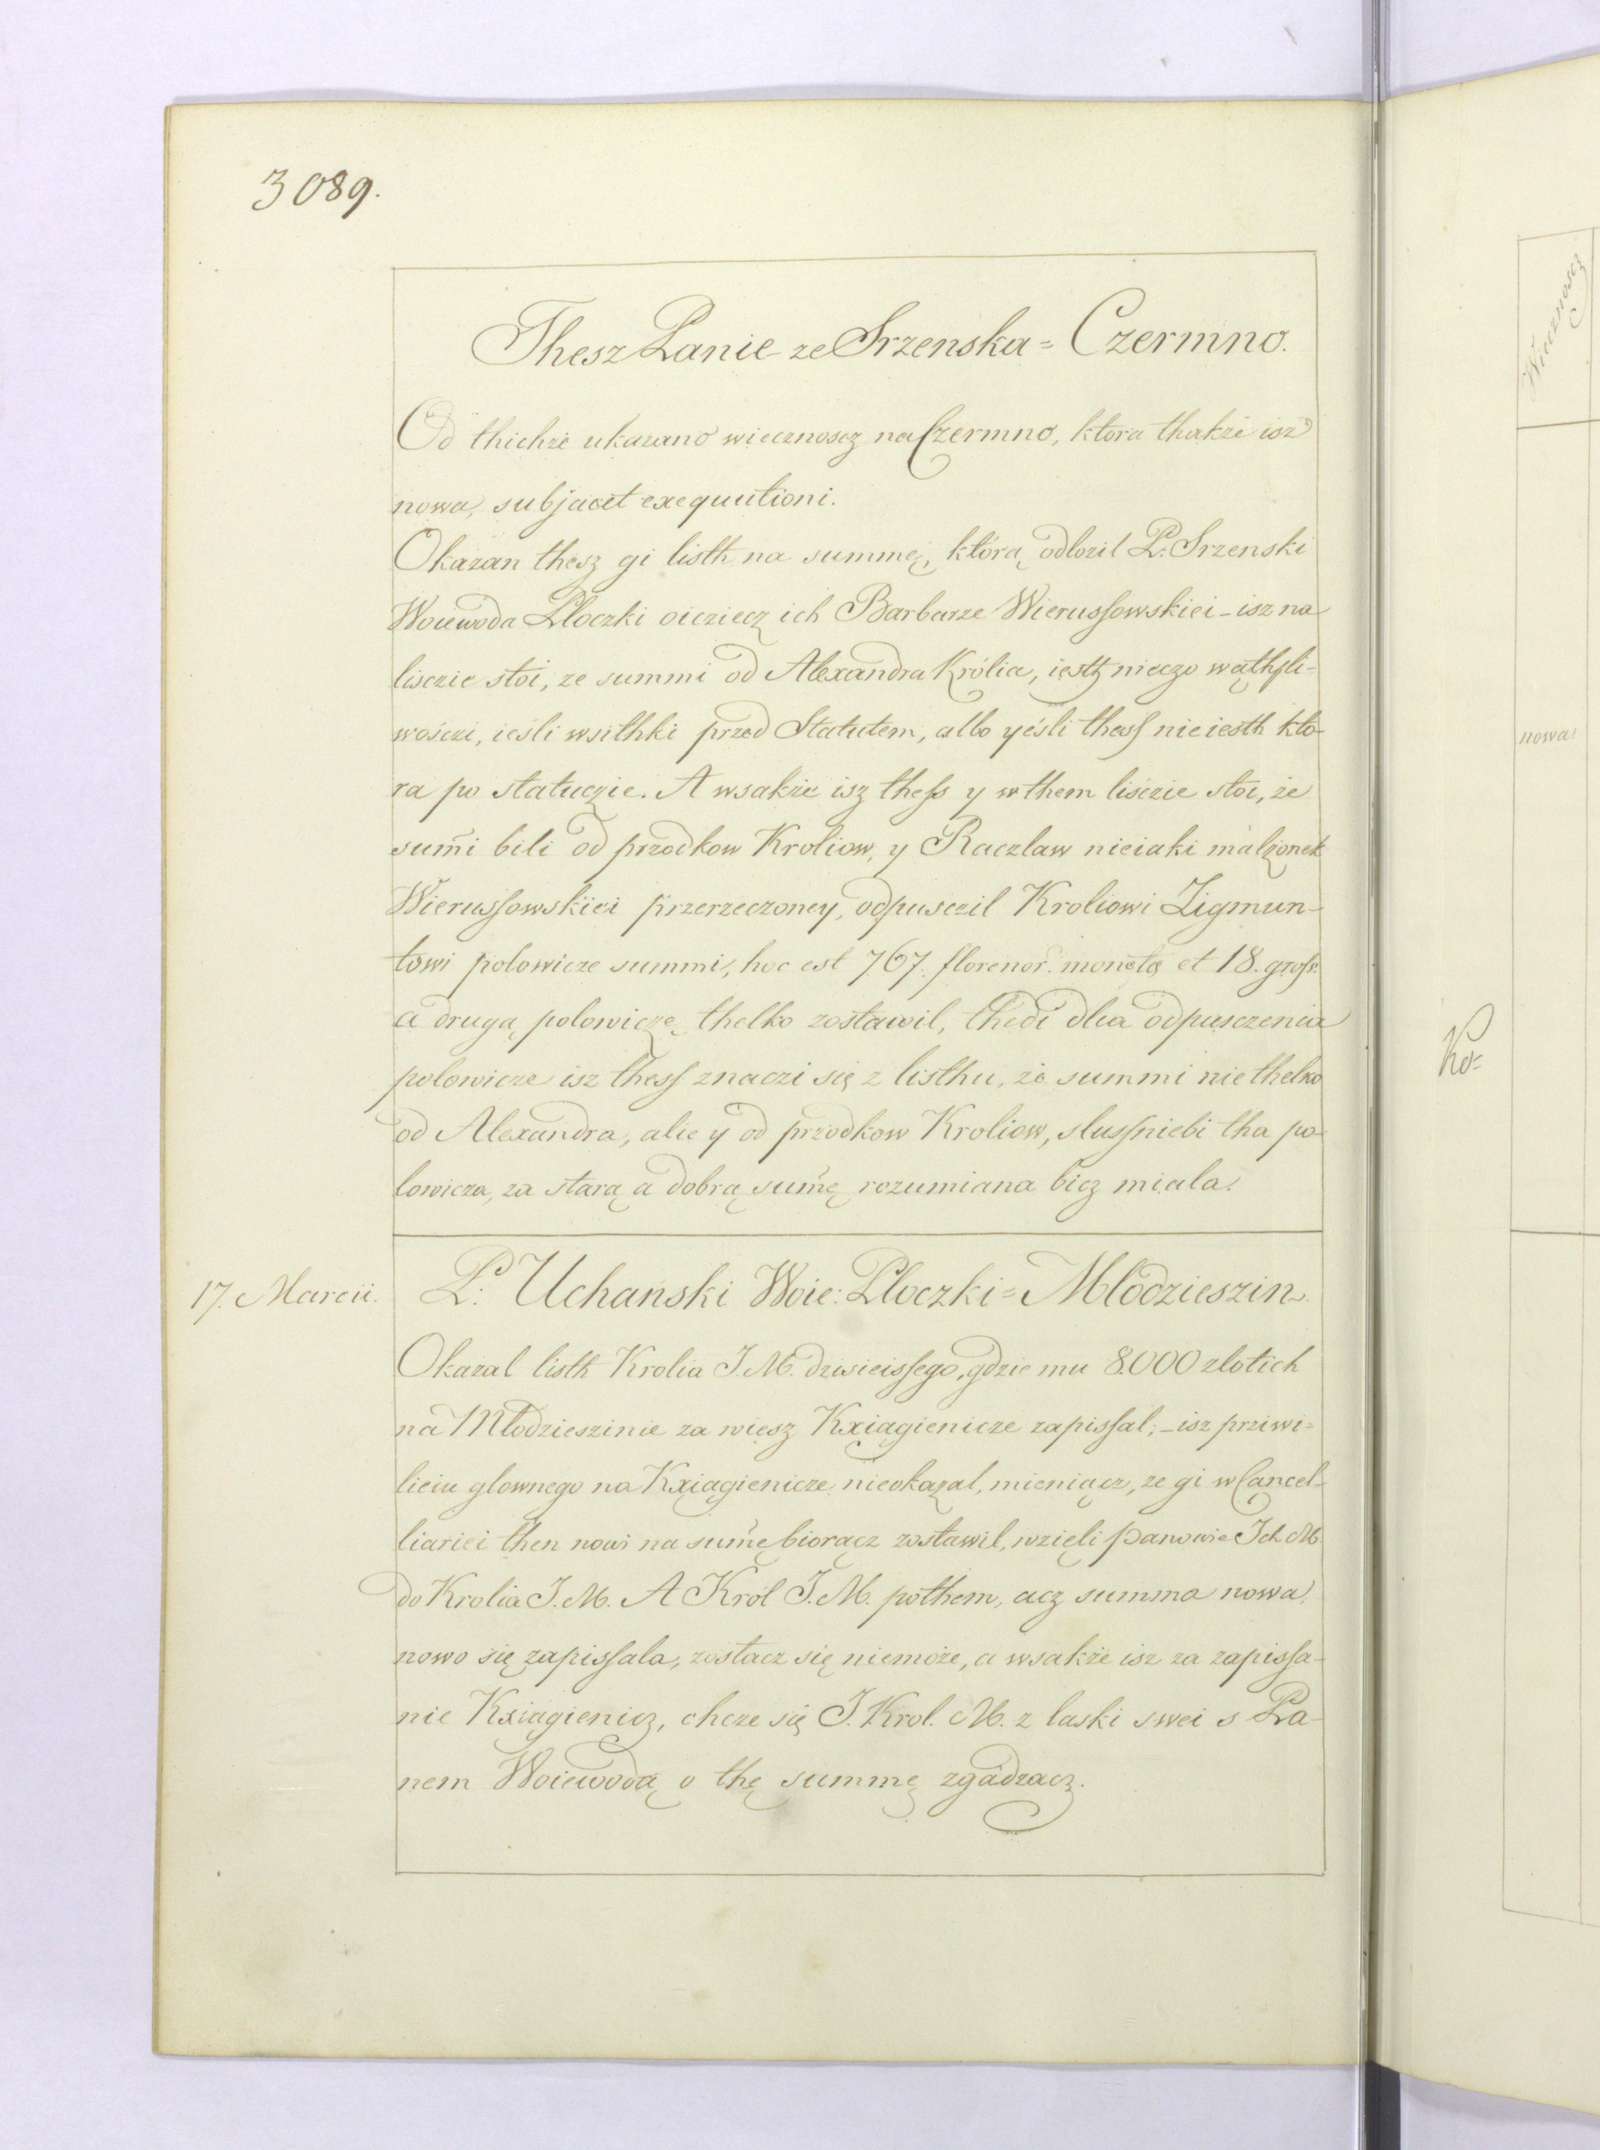 3089.
Thesz Panie ze Srzenska = Czermno.
Od thichże ukazano wiecznoscz na Czermno, ktora thakże isz
nowa, subjacet exequutioni.
Okazan thesz gi listh na summę, którą odlozil P. Srzenski
Woiewoda Ploczki oicziecz ich Barbarze Wierussowskiei – isz na
lisczie stoi, ze summi od Alexandra Królia, iestz nieczo wąthpli-
wośczi, ieśli wsithki przed Statutem, albo yéśli thess nie iesth któ-
ra po statuczie. A wsakże isz thess y w them lisczie stoi, że
sum̄i bili od przodkow Kroliow, y Raczlaw nieiaki malzonek
Wierussowskiei przerzeczoney, odpusczil Kroliowi Zigmun-
towi polowicze summi, hoc est 767. florenor. monetą et 18. gross.
a drugą polowiczę thelko zostawil, thedi dlia odpusczenia
polowicze isz thess znaczi się z listhu, że summi nie thelko
od Alexandra, alie y od przodkow Kroliow, slussniebi tha po-
lowicza, za starą a dobrą sum̄ę rozumiana bicz miala.
17. Marcii. P. Uchanski Woie: Ploczki = Mlodzieszin.
Okazal listh Krolia J. M. dzisieissego, gdzie mu 8000 zlotich
na Mlodzieszinie za wiesz Kxiągienicze zapissal; – isz prziwi-
lieiu glownego na Kxiągienicze nieokazal, mieniącz, ze gi w Cancel-
liariei then nowi na sum̄ę biorącz zostawil, wzięli panowie Ich M.
do Krolia J. M. A Król J. M. pothem, acz summa nowa,
nowo się zapissala, zostacz się niemoże, a wsakże isz za zapissa-
nie Kxiągienicz, chcze się J. Krol. M. z laski swei s Pa-
nem Woiewodą o thę summę zgadzacz.
Wiecznoscz
nowa
Ko=